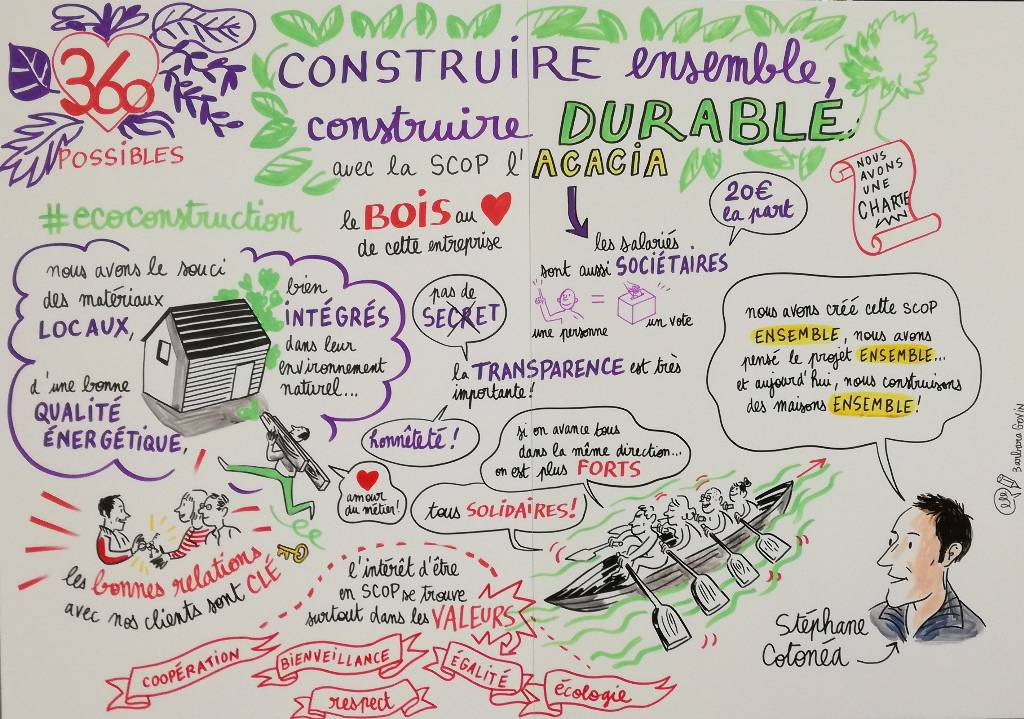 360
POSSIBLES
CONSTRUIRE ensemble,
construire DURABLE
avec la SCOP l'ACACIA
#ecoconstruction
le BOIS au
de cette entreprise
20€
la part
NOUS
AVONS
UNE
CHARTE
les salariés
sont aussi SOCIÉTAIRES
une personne
=
un vote
nous avons le souci
des matériaux
LOCAUX,
d'une bonne
QUALITÉ
ÉNERGÉTIQUE,
bien
INTÉGRÉS
dans leur
environnement
naturel...
pas de
SECRET
la TRANSPARENCE est très
importante!
honnêteté!
amour
du métier!
si on avance tous
dans la même direction...
on est plus FORTS
tous SOLIDAIRES!
nous avons créé cette SCOP
ENSEMBLE, nous avons
pensé le projet ENSEMBLE...
et aujourd'hui, nous construisons
des maisons ENSEMBLE!
Stéphane
Cotonéa
les bonnes relations
avec nos clients sont CLÉ
l'intérêt d'être
en SCOP se trouve
surtout dans les VALEURS
COOPÉRATION
BIENVEILLANCE
ÉGALITÉ
respect
écologie